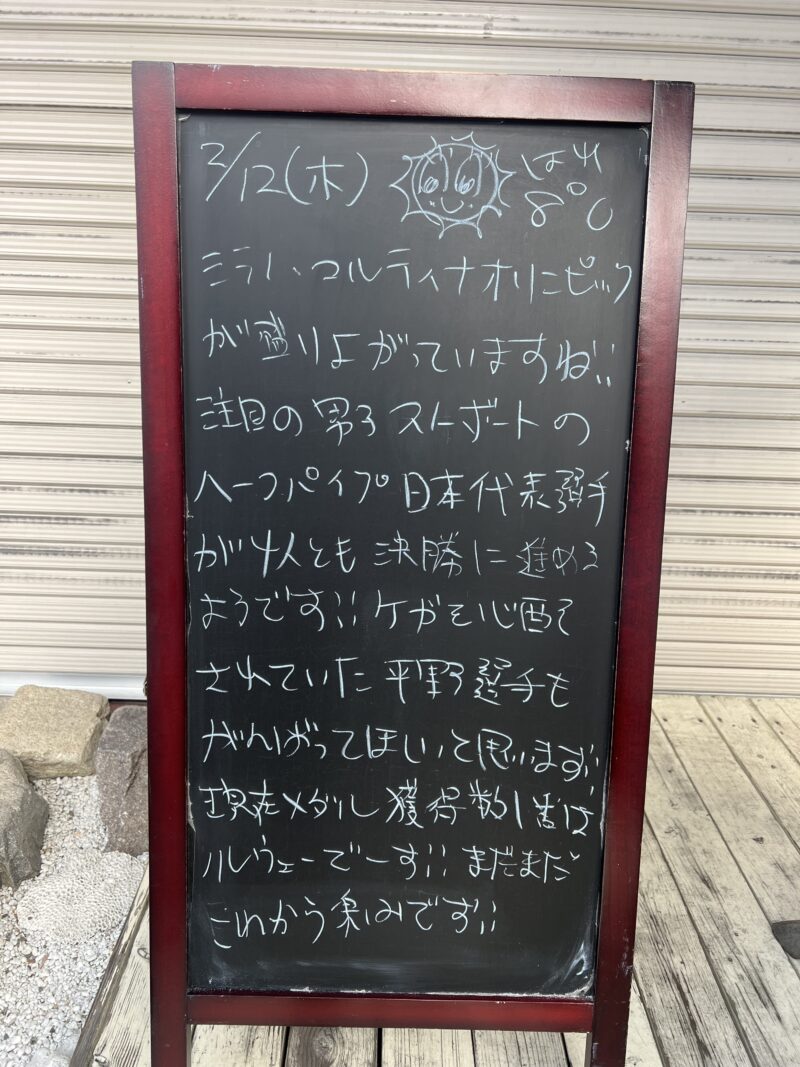 2/12(木) はれ 8℃
ミラノ・コルティナオリンピック
が盛り上がっていますね!!
注目の男子スノーボードの
ハーフパイプ日本代表選手
が4人とも決勝に進める
ようです!! ケガを心配を
されていた平野選手も
がんばってほしいと思います!!
現在メダル獲得数1番は
ノルウェーでーす!! まだまだ
これから楽しみです!!